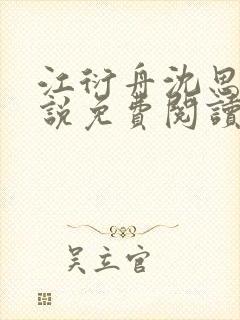 江衍舟沈思
說免費閱讀
吴立官